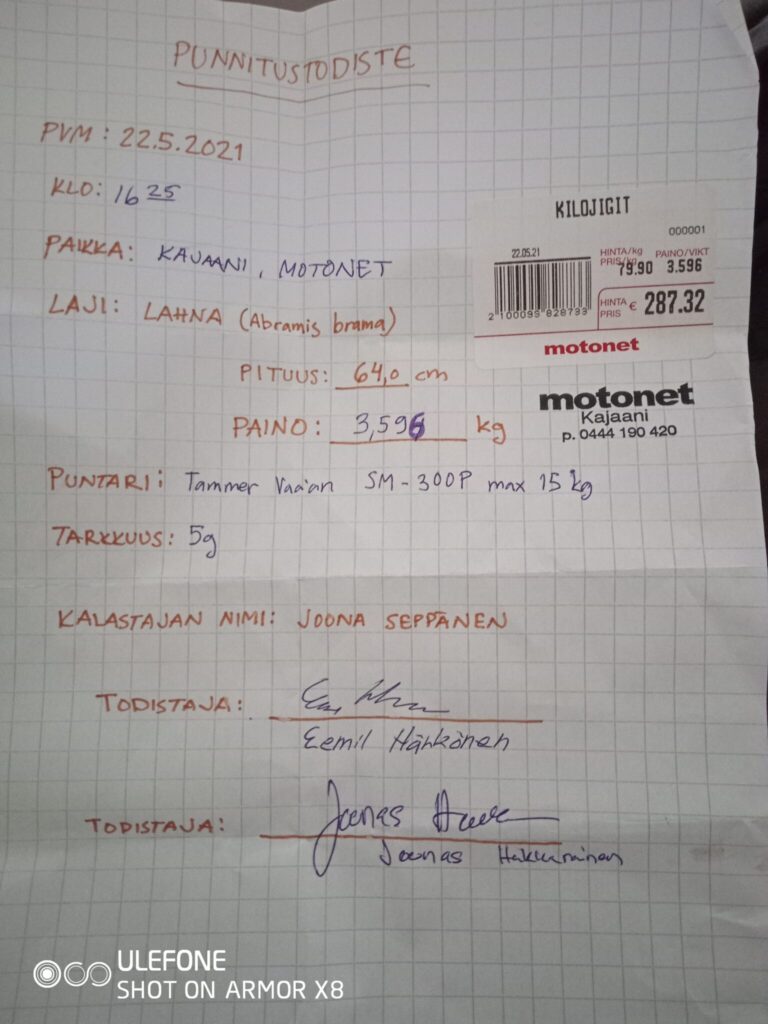 PUNNITUSTODISTE
PVM: 22.5.2021
KLO: 16 25
PAIKKA: KAJAANI, MOTONET
LAJI: LAHNA (Abramis brama)
PITUUS: 64,0 cm
PAINO: 3,596 kg
PUNTARI: Tammer Vaa'an SM-300P max 15 kg
TARKKUUS: 5g
KILOJIGIT
000001
22.05.21
HINTA/kg PAINO/VIKT
PRIS/kg
79.90 3.596
2 100095 828739
HINTA
PRIS € 287.32
motonet
motonet
Kajaani
p. 0444 190 420
KALASTAJAN NIMI: JOONA SEPPÄNEN
TODISTAJA:
Eemil Hähkönen
TODISTAJA: Joonas
Joonas Hakkarainen
ULEFONE
SHOT ON ARMOR X8